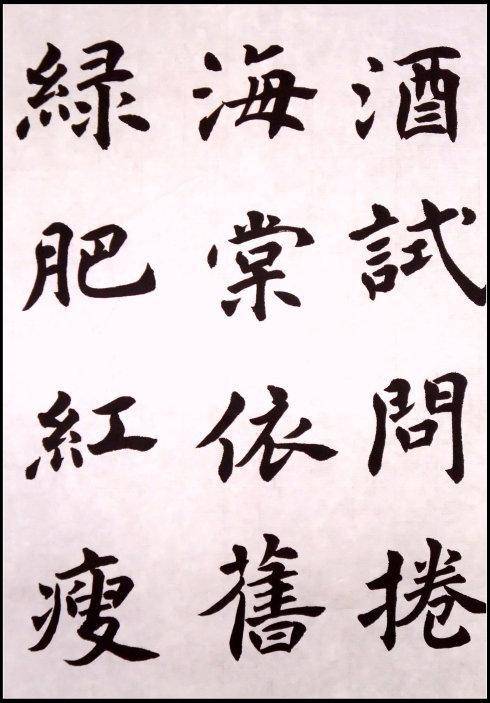 酒試問捲
海棠依舊
綠肥紅瘦